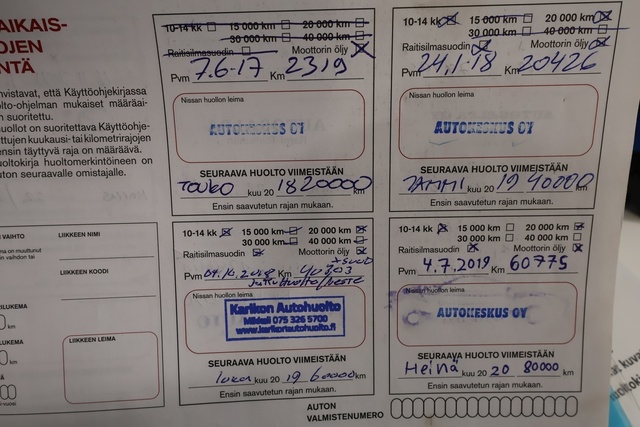 AIKAIS-
OJEN
NTÄ
nvistavat, että Käyttöohjekirjassa
olto-ohjelman mukaiset määräai-
n suoritettu.
uollot on suoritettava Käyttöohje-
ttujen kuukausi- tai kilometrirajojen
n täyttyvä raja on määräävä.
uoltokirja huoltomerkintöineen on
uton seuraavalle omistajalle.
VAIHTO
LIIKKEEN NIMI
ma on muuttunut
n vaihdon tai
LIIKKEEN KOODI
RILUKEMA
km
LUKEMA
km
LIIKKEEN LEIMA
10-14 kk 15 000 km 20 000 km
30 000 km 40 000 km
Raitisilmasuodin Moottorin öljy
Pvm 7.6-17 Km 2319
Nissan huollon leima
AUTOKESKUS OY
SEURAAVA HUOLTO VIIMEISTÄÄN
TOUKO kuu 20 18 20000 km
Ensin saavutetun rajan mukaan.
10-14 kk 15 000 km 20 000 km
30 000 km 40 000 km
Raitisilmasuodin Moottorin öljy
Pvm 24.1-18 Km 20426
Nissan huollon leima
AUTOKESKUS OY
SEURAAVA HUOLTO VIIMEISTÄÄN
TAMMI kuu 20 19 40000 km
Ensin saavutetun rajan mukaan.
10-14 kk 15 000 km 20 000 km
30 000 km 40 000 km
Raitisilmasuodin Moottorin öljy
Pvm 04.10.2018 Km 40303
Nissan huollon leima
Karikon Autohuolto
Mikkeli 075 326 5700
www.karikonautohuolto.fi
SEURAAVA HUOLTO VIIMEISTÄÄN
loka kuu 20 19 60000 km
Ensin saavutetun rajan mukaan.
10-14 kk 15 000 km 20 000 km
30 000 km 40 000 km
Raitisilmasuodin Moottorin öljy
Pvm 4.7.2019 Km 60775
Nissan huollon leima
AUTOKESKUS OY
SEURAAVA HUOLTO VIIMEISTÄÄN
Heinä kuu 20 20 80000 km
Ensin saavutetun rajan mukaan.
AUTON
VALMISTENUMERO